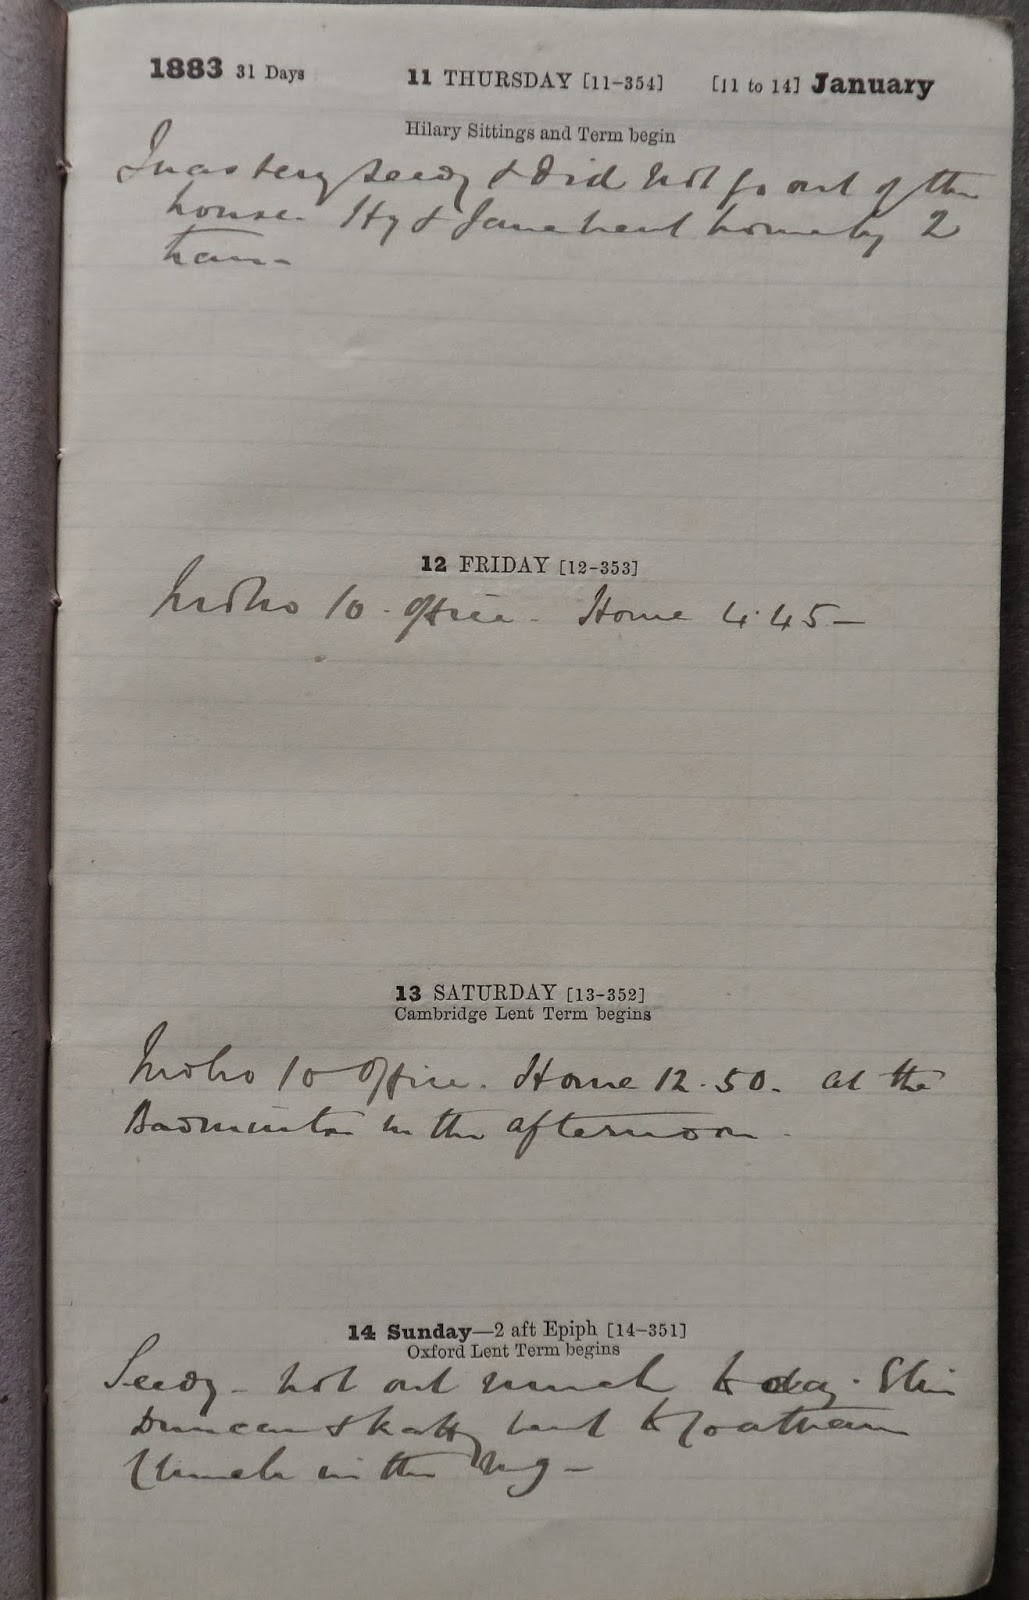 1883 31 Days 11 THURSDAY [11-354] [11 to 14] January
Hilary Sittings and Term begin
I was very seedy & did not go out of the
house. Hy & Jane went home by 2
train -
12 FRIDAY [12-353]
10. Office. Home 4.45 -
13 SATURDAY [13-352]
Cambridge Lent Term begins
10 Office. Home 12.50. at the
Badminton in the afternoon.
14 Sunday—2 aft Epiph [14-351]
Oxford Lent Term begins
Seedy - not out much to day.
Duncan & Katty went to
Church in the Mg -